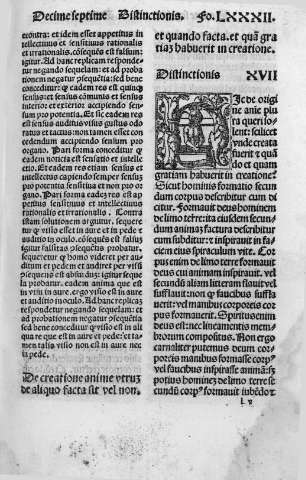 Decimeseptime Distinctionis. Fo. LXXXII.
econtra: et idem esset appetitus in
intellectiuus et sensitiuus rationalis
et irrationalis. cōseq̄ūs est falsum:
igitur. Ad hanc replicam responde-
tur negando sequelam: et ad proba-
tionem negatur
bene conceditur: q eadem res est quinq
sensus: et sensus communis et sensus
interior et exterior accipiendo sen-
sum pro potentia. Et sic eadem res
est sensus auditus visus gustus odo
ratus et tactus: non tamen esset con-
cedendum accipiendo sensum pro
organo. Pari forma conceditur q
eadem notitia est sensatio et intelle-
ctio. Et eadem res etiam sensus
et intellectus capiendo semper sensus
pro potentia sensitiua et non pro or
gano. Pari forma eadem res est ap
petitus sensitiuus et intellectiuus
rationalis et irrationalis. Contra
istam solutionem arguitur. sequere-
tur q visus esset in aure et in pede et
auditus in oculo. cōseq̄ūs est falsum
igitur falsitas probatur.
sequeretur q homo videret per au-
ditum et pedem et audiret per visum
est absurdum: igitur
la probatur. eadem anima que est
in visu in aure. ergo visus est in auri
et auditio in oculo. Ad hanc replicam
respondetur negando sequelam: et ad
probationem negatur
sed bene conceditur q visus est in ali
qua re que est in aure et pede: et ta-
men talis visus non est in aure nec
in pede.
De creatione anime vtrum
de aliquo facta sit vel non.
et quando facta. et quā gra
tiam habuerit in creatione.
Distinctionis XVII
Hic de origi
ne anime plu
ra queri so-
lent: scilicet
vnde creata
fuerit et quā
do et quam
gratiam habuerit in creatione?
Sicut hominis formatio secun
dum corpus describitur cum di
citur. Formauit deus hominem
de limo terre: ita eiusdem secun-
dum animam factura describitur
cum subditur: et inspirauit in fa-
ciem eius spiraculum vite. Cor
pus enim de limo terre formauit
deus cui animam inspirauit. vel
secundum aliam litteram flauit vel
sufflauit: non q faucibus suffla
uerit: vel manibus corporeis cor
pus formauerit. Spiritus enim
deus est: nec lineamentis mem-
brorum compositus. Non ergo
carnaliter putemus deum cor-
poreis manibus formasse corpus
vel faucibus inspirasse animam: sed
potius hominem de limo terre se
cundum corpus formauit iubēdo et